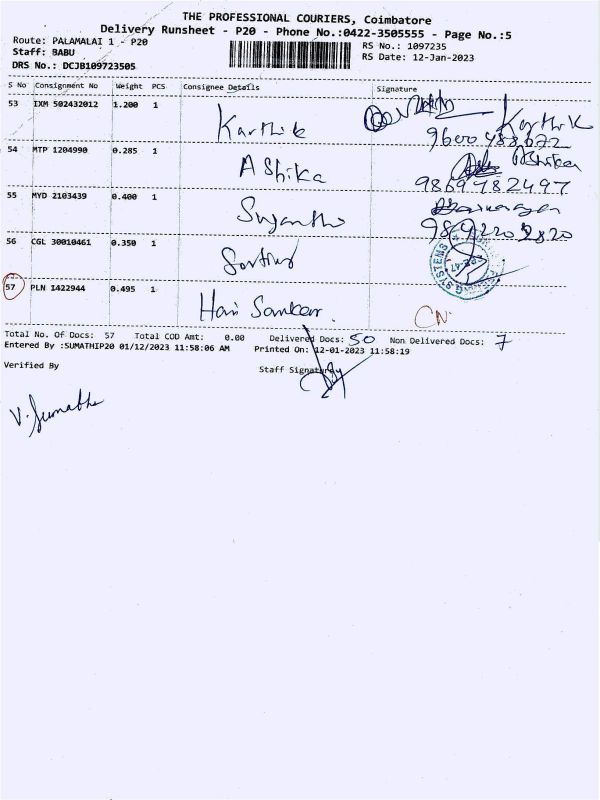 THE PROFESSIONAL COURIERS, Coimbatore
Delivery Runsheet - P20 - Phone No.:0422-3505555 - Page No.:5
Route: PALAMALAI 1 - P20
RS No.: 1097235
Staff: BABU
RS Date: 12-Jan-2023
DRS No.: DCJB109723505
S No Consignment No Weight PCS Consignee Details Signature
53 IXM 502432012 1.200 1
Karthik Karthik
9600488672
54 MTP 1204990 0.285 1
Ashika Ashika
9869982497
55 MYD 2103439 0.400 1
56 CGL 30010461 0.350 1
SYSTEMS
57 PLN 1422944 0.495 1
Hari Sankar. CN
Total No. Of Docs: 57 Total COD Amt: 0.00 Delivered Docs: 50 Non Delivered Docs: 7
Entered By :SUMATHIP20 01/12/2023 11:58:06 AM Printed On: 12-01-2023 11:58:19
Verified By Staff Signature
V. Sumathi